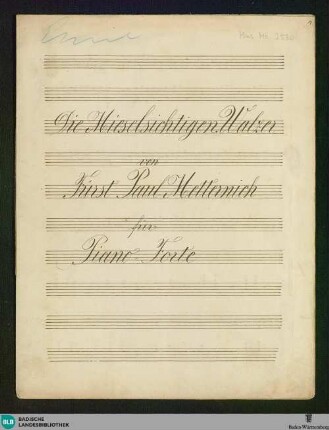 Die Mieselsichtigen Walzer
von
Fürst Paul Metternich
für
Piano-Forte
BLB BADISCHE
LANDESBIBLIOTHEK
Baden-Württemberg